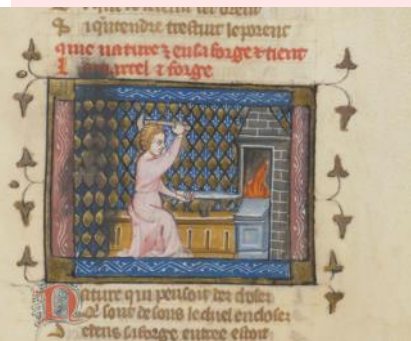 trestuit le porent
nature ensa forge ⁊ tient
martel ⁊ forge
Nature qui pensoit des choses
sont desous le ciel encloses
Dedens sa forge entree estoit